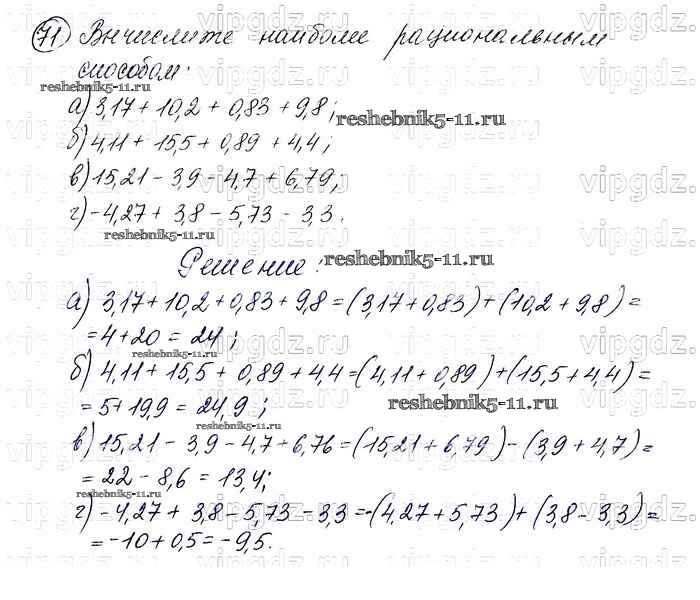 71) Вычислите наиболее рациональным
способом:
reshebnik5-11.ru
а) 3,17 + 10,2 + 0,83 + 9,8;
reshebnik5-11.ru
б) 4,11 + 15,5 + 0,89 + 4,4;
в) 15,21 - 3,9 - 4,7 + 6,79;
г) -4,27 + 3,8 - 5,73 - 3,3.
reshebnik5-11.ru
Решение:
reshebnik5-11.ru
а) 3,17 + 10,2 + 0,83 + 9,8 = (3,17 + 0,83) + (10,2 + 9,8) =
= 4 + 20 = 24;
reshebnik5-11.ru
б) 4,11 + 15,5 + 0,89 + 4,4 = (4,11 + 0,89) + (15,5 + 4,4) =
= 5 + 19,9 = 24,9;
reshebnik5-11.ru
в) 15,21 - 3,9 - 4,7 + 6,76 = (15,21 + 6,79) - (3,9 + 4,7) =
= 22 - 8,6 = 13,4;
reshebnik5-11.ru
г) -4,27 + 3,8 - 5,73 - 3,3 = -(4,27 + 5,73) + (3,8 - 3,3) =
= -10 + 0,5 = -9,5.